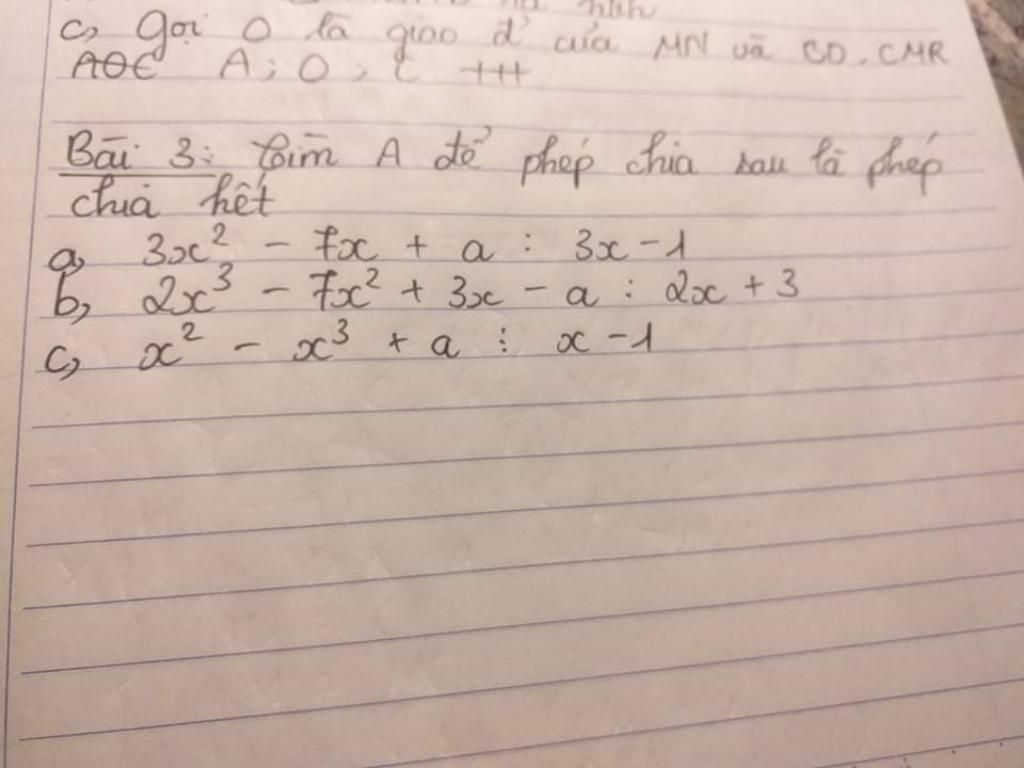 c, Gọi O là giao đ' của MN và BD. CMR
A; O; C +++
Bài 3: Tìm A để phép chia sau là phép
chia hết
a, 3x² - 7x + a : 3x - 1
b, 2x³ - 7x² + 3x - a : 2x + 3
c, x² - x³ + a ⋮ x - 1